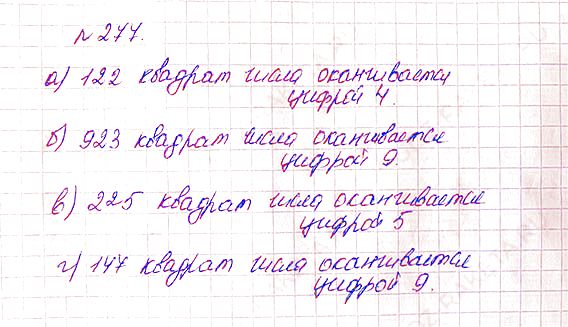 № 277.
а) 122 квадрат числа оканчивается
цифрой 4.
б) 923 квадрат числа оканчивается
цифрой 9.
в) 225 квадрат числа оканчивается
цифрой 5
г) 147 квадрат числа оканчивается
цифрой 9.